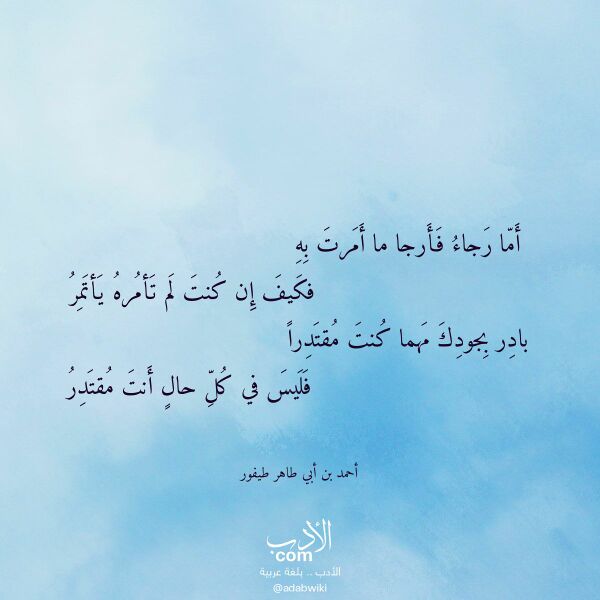 أَمّا رَجاءُ فَأَرجا ما أَمَرتَ بِهِ
فكَيفَ إِن كُنتَ لَم تَأمُرهُ يَأتَمِرُ
بادِر بِجودِكَ مَهما كُنتَ مُقتَدِراً
فَلَيسَ في كُلِّ حالٍ أَنتَ مُقتَدِرُ
أحمد بن أبي طاهر طيفور
الأدب
com
الأدب .. بلغة عربية
@adabwiki